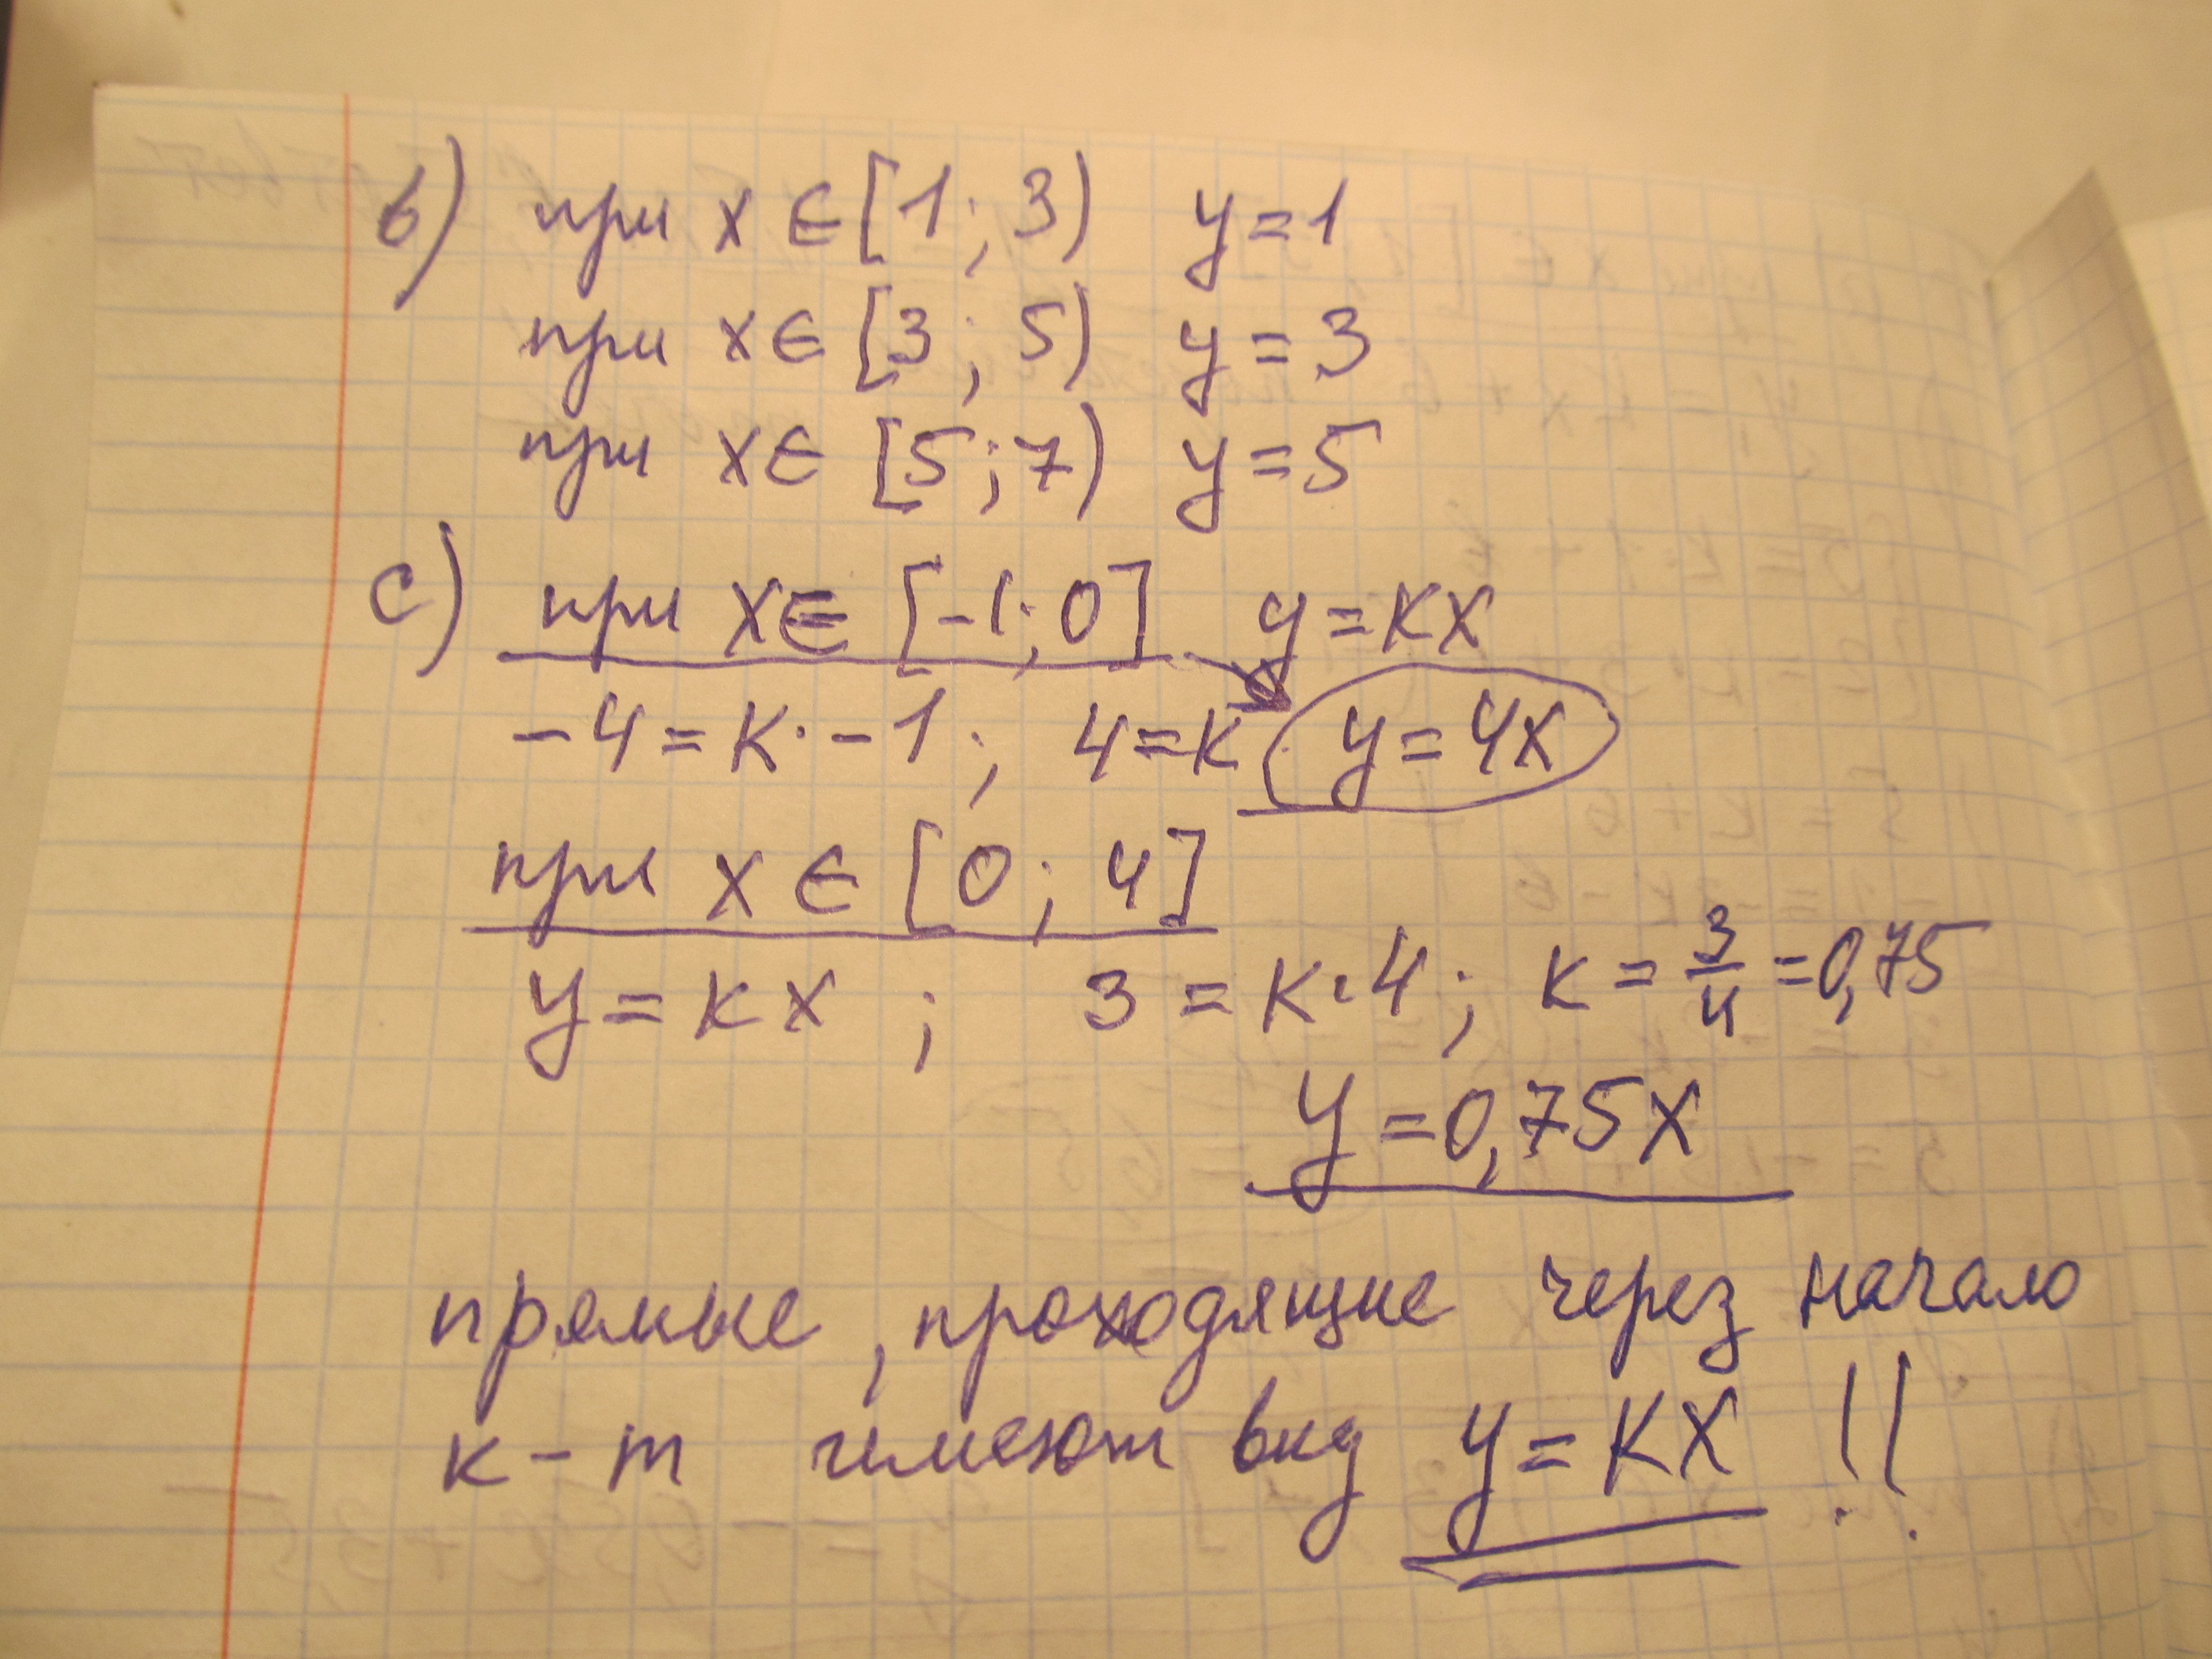 b) при x ∈ [1; 3) y = 1
при x ∈ [3; 5) y = 3
при x ∈ [5; 7) y = 5
c) при x ∈ [-1; 0] y = kx
-4 = k · -1; 4 = k y = 4x
при x ∈ [0; 4]
y = kx; 3 = k · 4; k = 3/4 = 0,75
y = 0,75x
прямые, проходящие через начало
к-т имеют вид y = kx !!